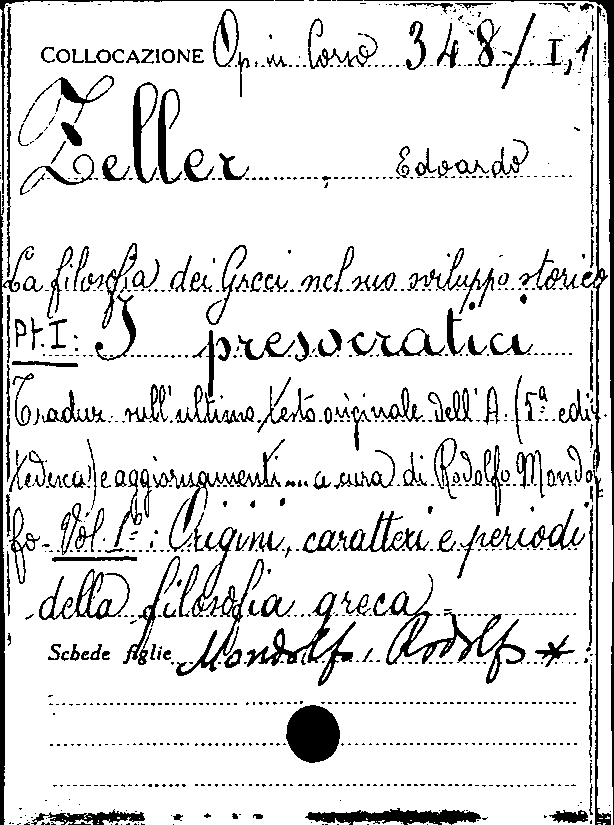 COLLOCAZIONE Op. in Corso 348-/I,1
Zeller, Edoardo
La filosofia dei Greci nel suo sviluppo storico
Pt. I: I presocratici
Traduz. sull'ultimo testo originale dell'A. (5ª ediz.
tedesca) e aggiornamenti.... a cura di Rodolfo Mondol-
fo - Vol. Iº: Origini, caratteri e periodi
della filosofia greca -
Schede figlie Mondolfo, Rodolfo *